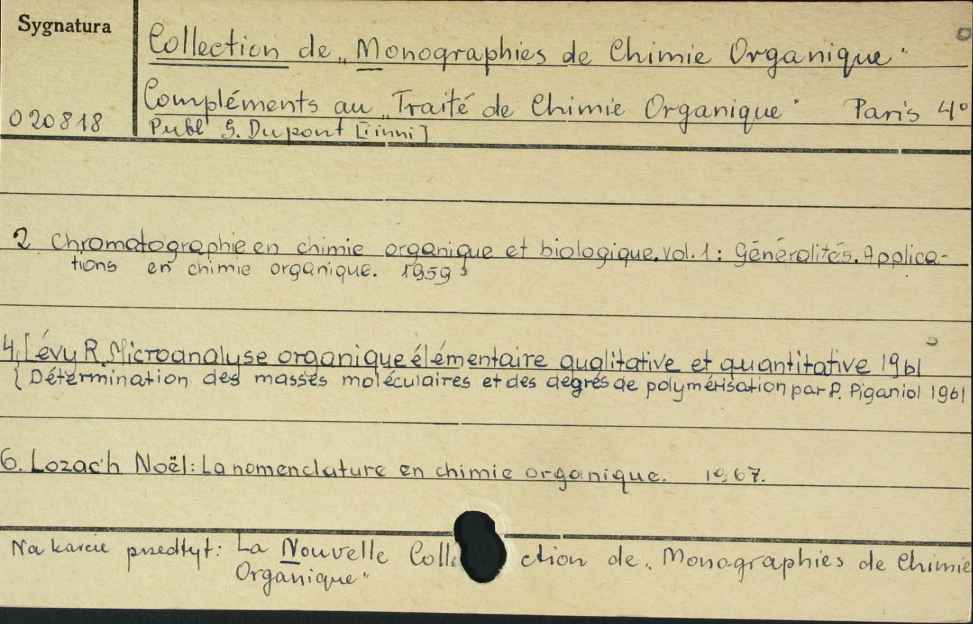 Sygnatura
Collection de „Monographies de Chimie Organique"
Compléments au „Traité de Chimie Organique" Paris 4°
020818
Publ G. Dupont [i inni]
2 Chromatographie en chimie organique et biologique. vol. 1: Généralités. Applica-
tions en chimie organique. 1959
4. Lévy R. Microanalyse organique élémentaire qualitative et quantitative 1961
{ Détermination des masses moléculaires et des degrés de polymérisation par P. Piganiol 1961
6. Lozac'h Noël: La nomenclature en chimie organique. 1967.
Na karcie przedtyt: La Nouvelle Colle ction de „Monographies de Chimie
Organique"